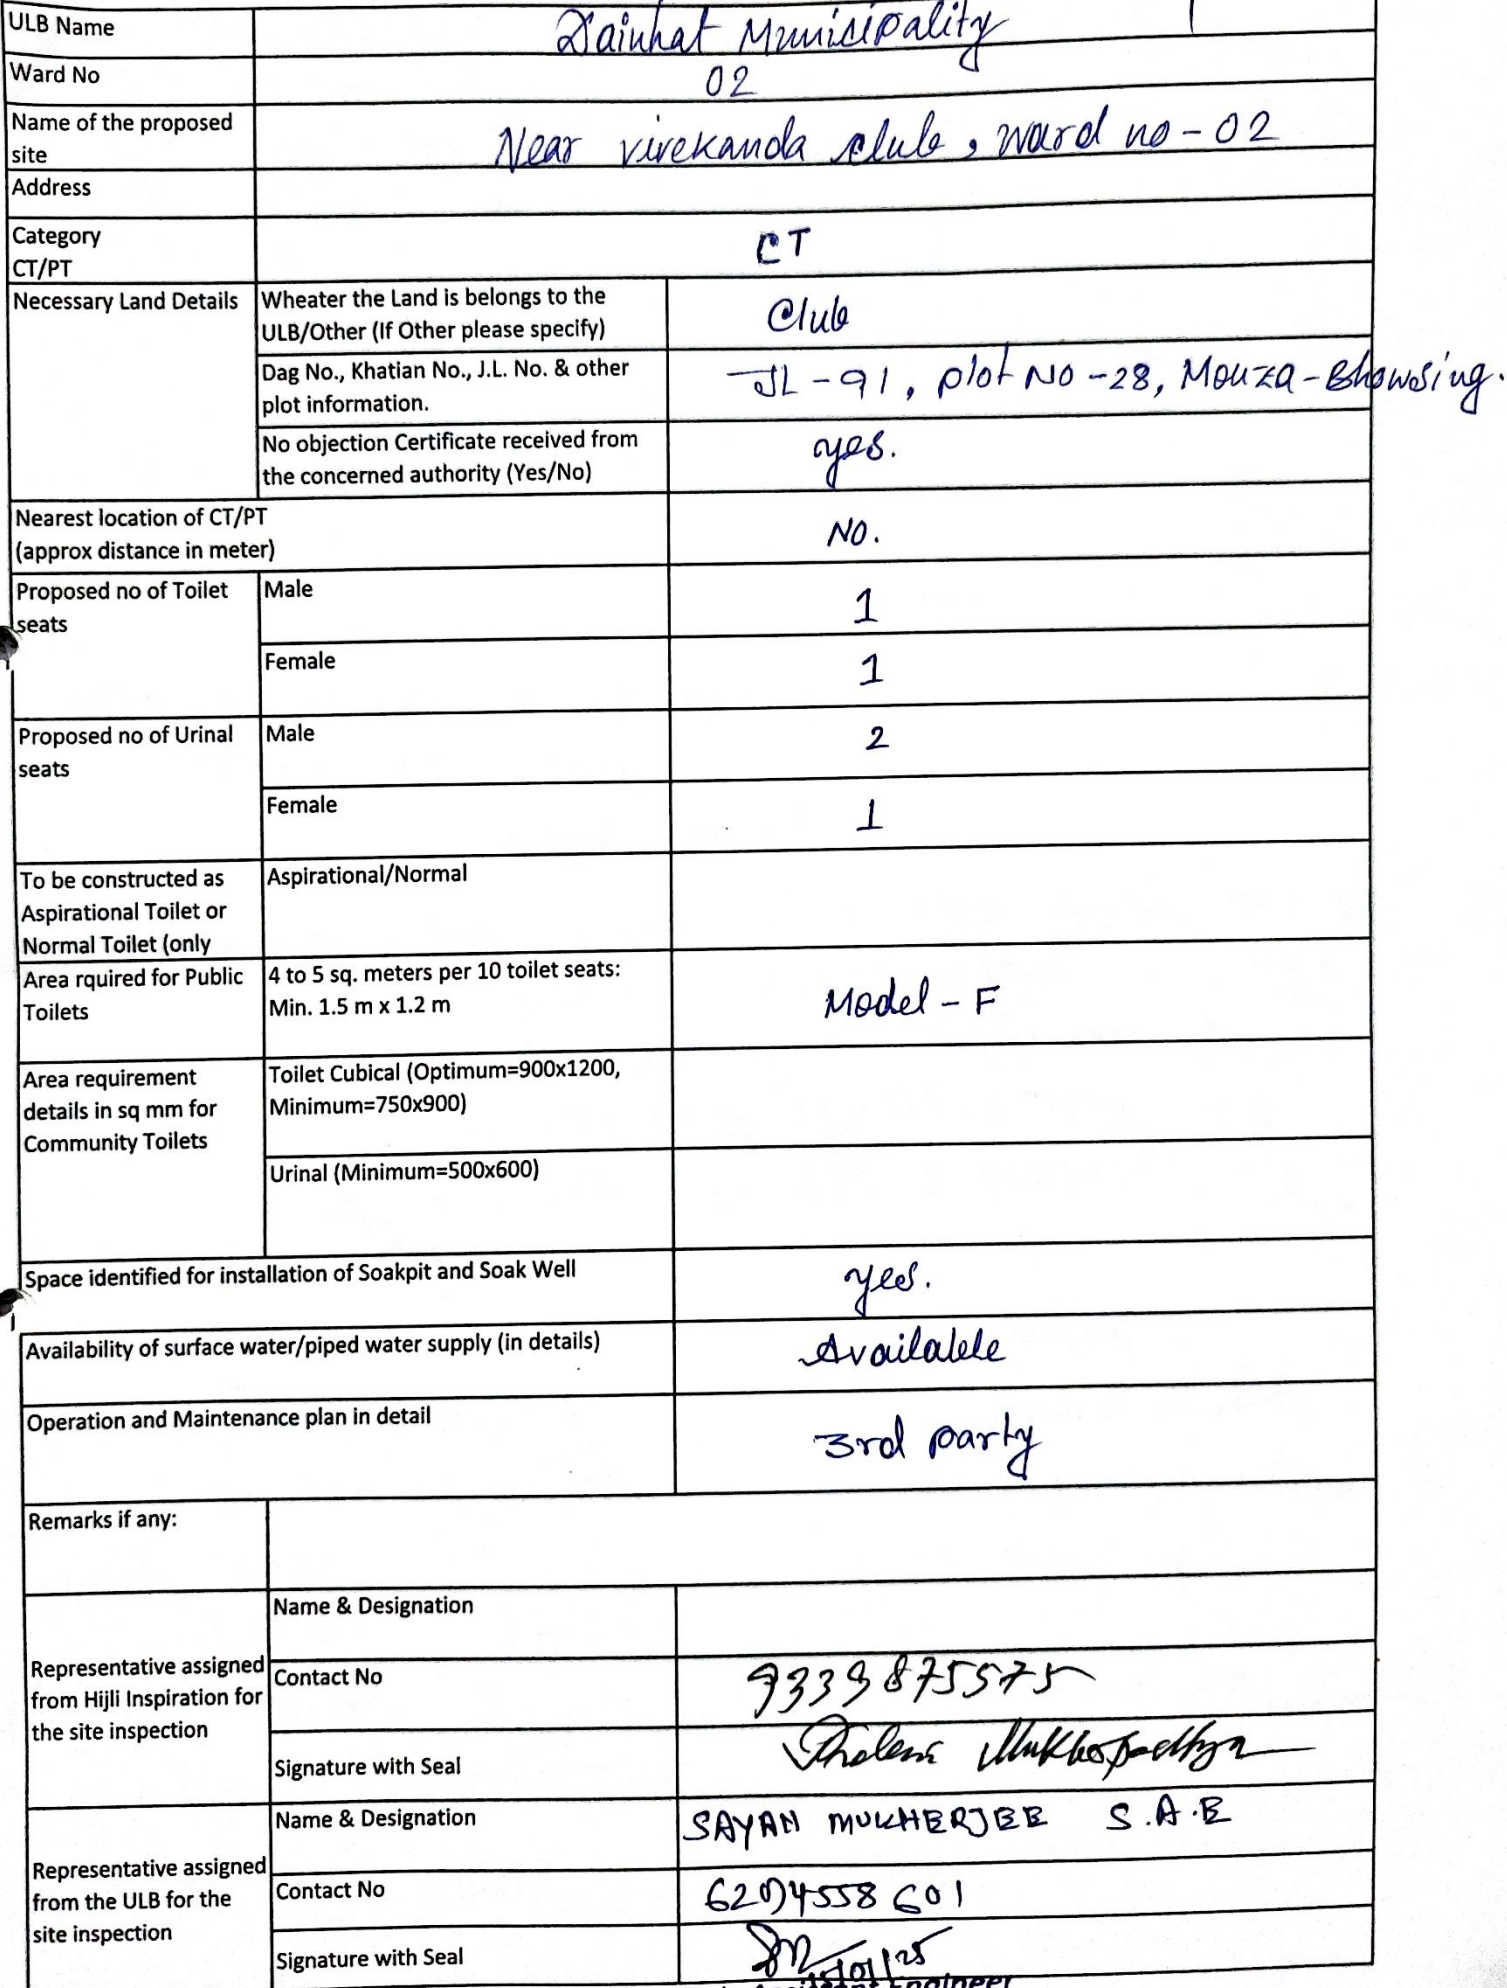 ULB Name Dainhat Municipality
Ward No 02
Name of the proposed
site Near vivekanda club, ward no-02
Address
Category
CT/PT CT
Necessary Land Details Wheater the Land is belongs to the
ULB/Other (If Other please specify) Club
Dag No., Khatian No., J.L. No. & other
plot information. JL-91, plot No-28, Mouza-Bhowsing.
No objection Certificate received from
the concerned authority (Yes/No) yes.
Nearest location of CT/PT
(approx distance in meter) NO.
Proposed no of Toilet
seats
Male 1
Female 1
Proposed no of Urinal
seats
Male 2
Female 1
To be constructed as
Aspirational Toilet or
Normal Toilet (only
Aspirational/Normal
Area rquired for Public
Toilets
4 to 5 sq. meters per 10 toilet seats:
Min. 1.5 m x 1.2 m
Model-F
Area requirement
details in sq mm for
Community Toilets
Toilet Cubical (Optimum=900x1200,
Minimum=750x900)
Urinal (Minimum=500x600)
Space identified for installation of Soakpit and Soak Well yes.
Availability of surface water/piped water supply (in details) Available
Operation and Maintenance plan in detail 3rd party
Remarks if any:
Representative assigned
from Hijli Inspiration for
the site inspection
Name & Designation
Contact No 9339875575
Signature with Seal Mukhopadhya
Representative assigned
from the ULB for the
site inspection
Name & Designation SAYAN MUKHERJEE S.A.E
Contact No
Signature with Seal
Engineer